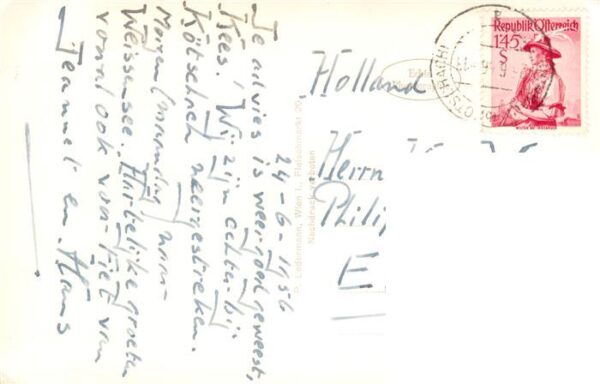 24-6-1956
Je advies is weer goed geweest,
Kees! Wij zijn echter bij
Kötschach neergestreken.
Morgen (maandag) naar
Weissensee. Hartelijke groeten
vooral ook voor Fiet van
Jeannet en Hans
P. Ledermann, Wien I., Fleischmarkt 20
Nachdruck verboten
Holland
Herrn
Philip
E
Republik Österreich
1'45
S